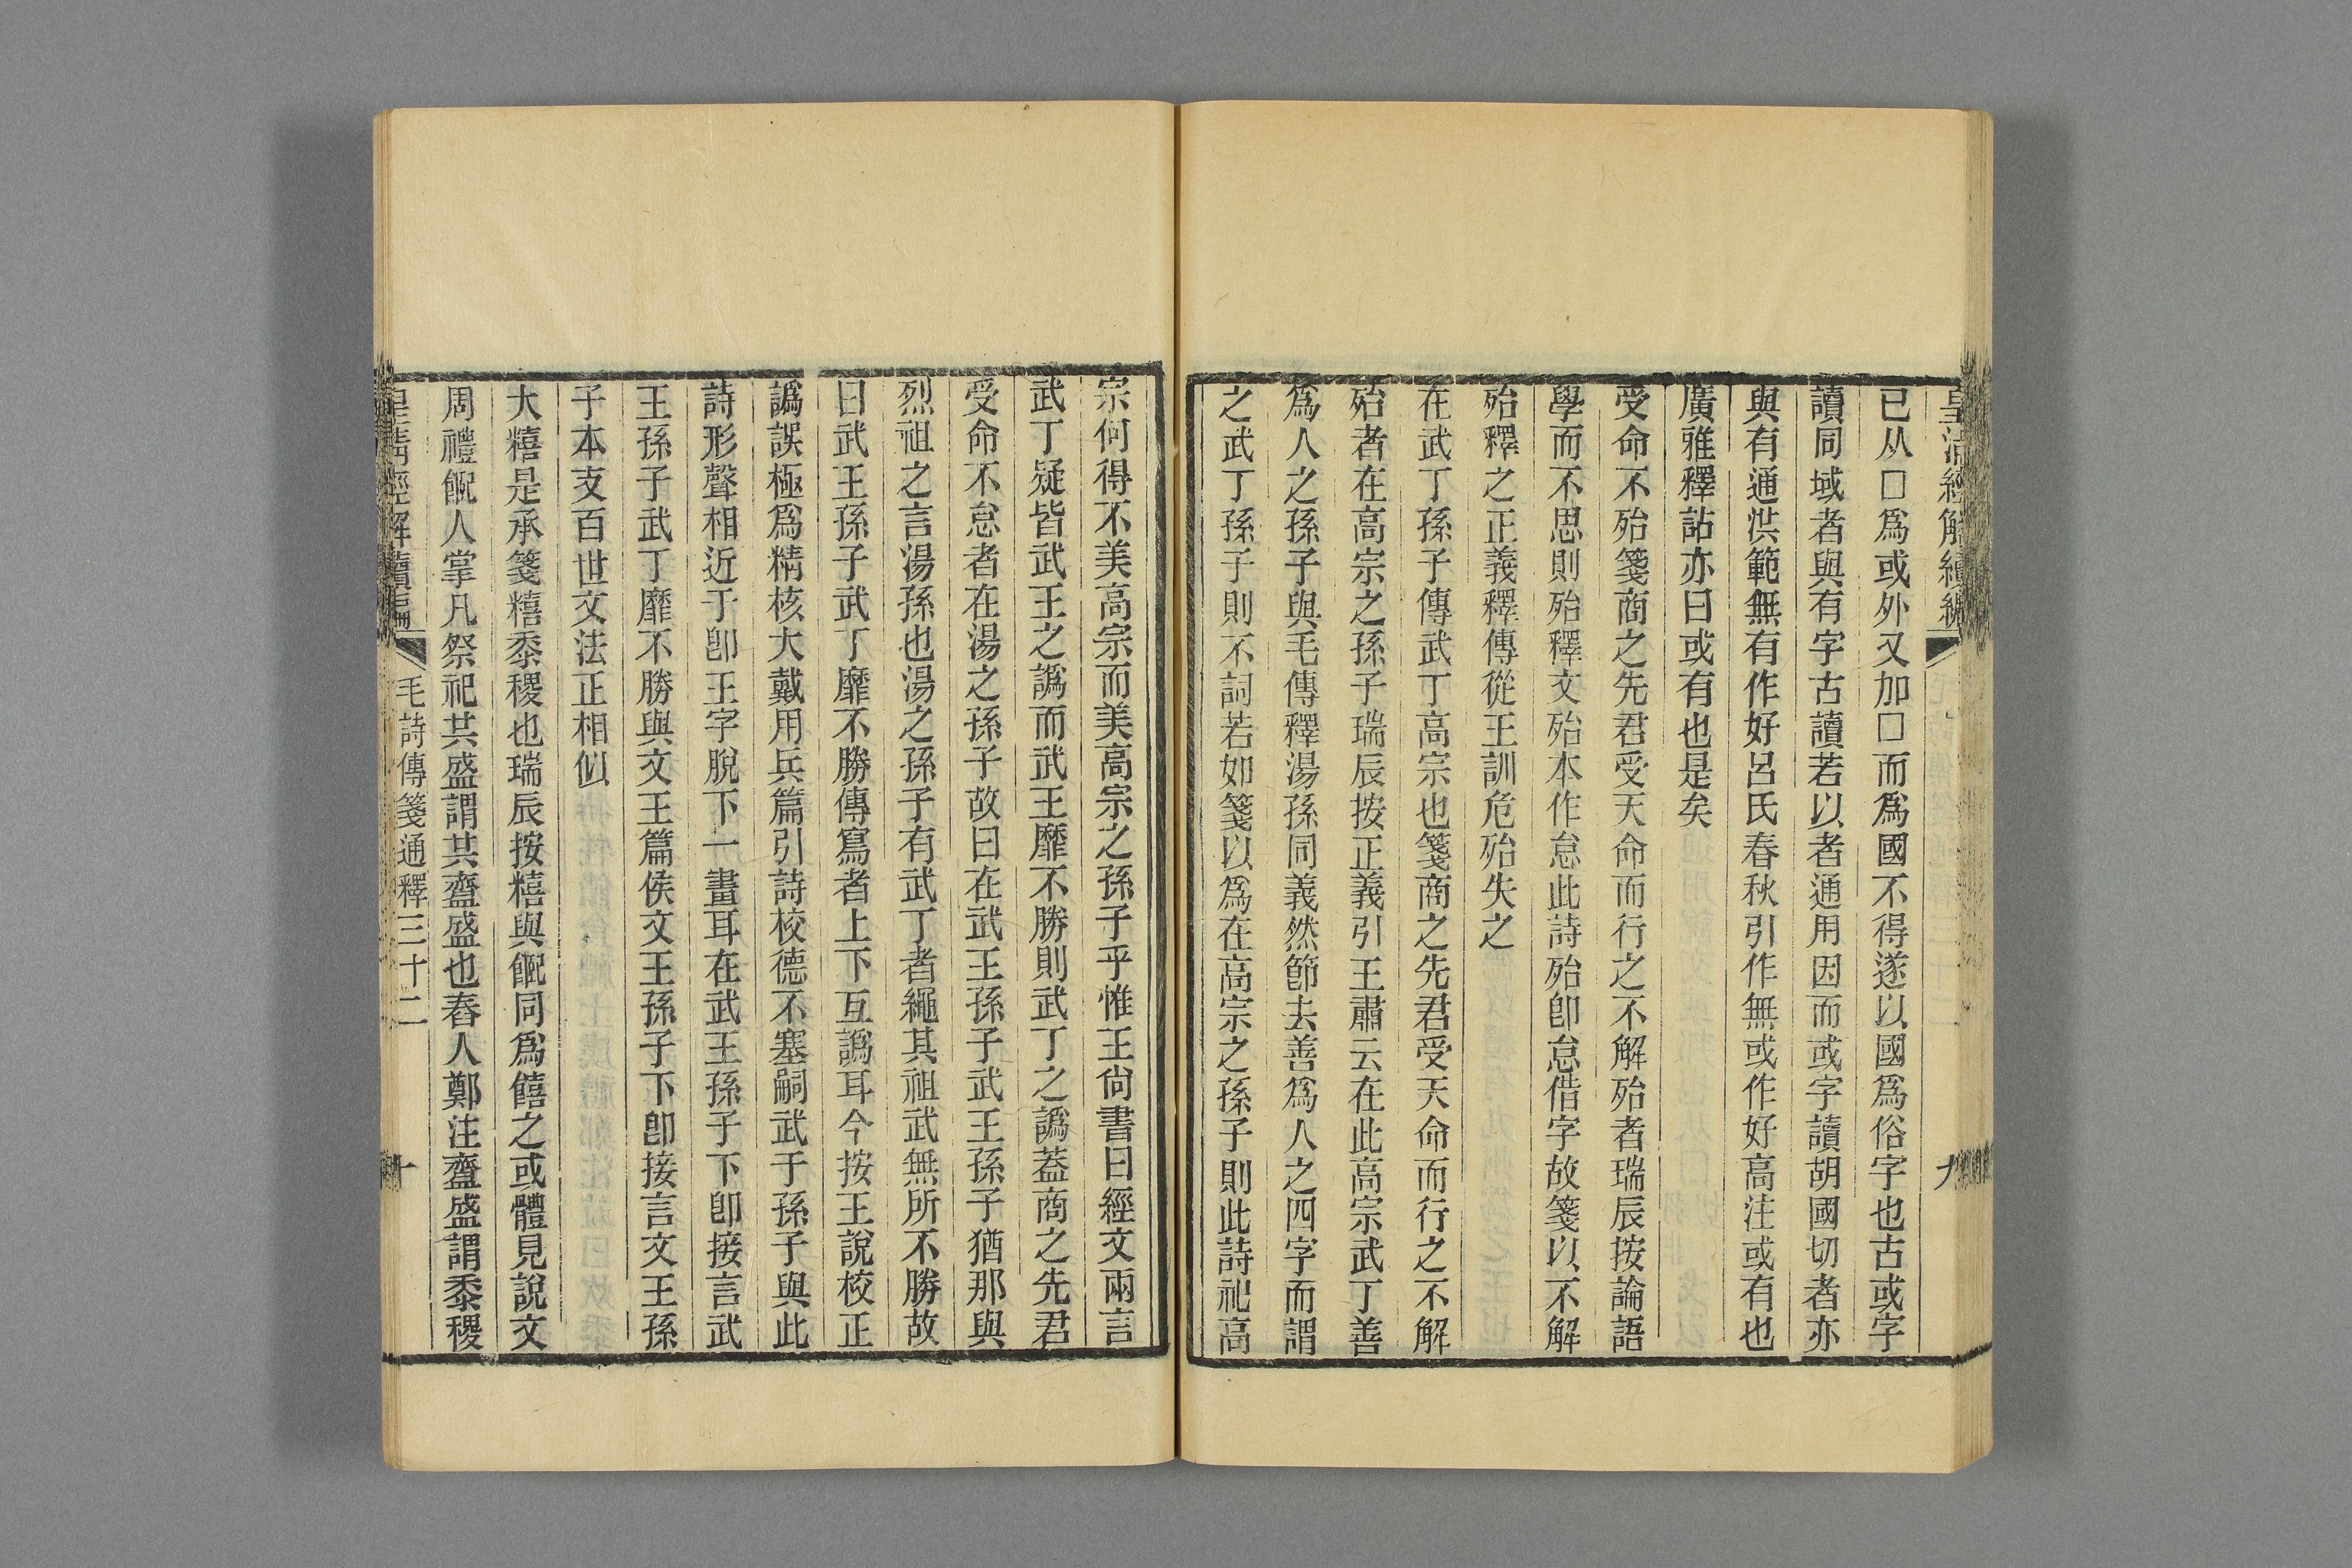 皇清經解續編
九
已从囗爲或外又加囗而爲國不得遂以國爲俗字也古或字
讀同域者與有字古讀若以者通用因而或字讀胡國切者亦
與有通洪範無有作好呂氏春秋引作無或作好高注或有也
廣雅釋詁亦曰或有也是矣
受命不殆箋商之先君受天命而行之不解殆者瑞辰按論語
學而不思則殆釋文殆本作怠此詩殆卽怠借字故箋以不解
殆釋之正義釋傳從王訓危殆失之
在武丁孫子傳武丁高宗也箋商之先君受天命而行之不解
殆者在高宗之孫子瑞辰按正義引王肅云在此高宗武丁善
爲人之孫子與毛傳釋湯孫同義然節去善爲人之四字而謂
之武丁孫子則不詞若如箋以爲在高宗之孫子則此詩祀高
宗何得不美高宗而美高宗之孫子乎惟王尙書曰經文兩言
武丁疑皆武王之譌而武王靡不勝則武丁之譌葢商之先君
受命不怠者在湯之孫子故曰在武王孫子武王孫子猶那與
烈祖之言湯孫也湯之孫子有武丁者繩其祖武無所不勝故
曰武王孫子武丁靡不勝傳寫者上下互譌耳今按王說校正
譌誤極爲精核大戴用兵篇引詩校德不塞嗣武于孫子與此
詩形聲相近于卽王字脫下一畫耳在武王孫子下卽接言武
王孫子武丁靡不勝與文王篇侯文王孫子下卽接言文王孫
子本支百世文法正相似
大糦是承箋糦黍稷也瑞辰按糦與䭈同爲饎之或體見說文
周禮䭈人掌凡祭祀共盛謂共齍盛也舂人鄭注齍盛謂黍稷
皇清經解續編
毛詩傳箋通釋三十二
十